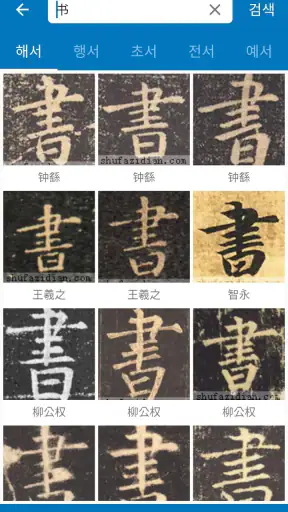 书 검색
해서 행서 초서 전서 예서
書 書 書
shufazidian.com
钟繇 钟繇 钟繇
書 書 書
王羲之 王羲之 智永
書 書 書
柳公权 柳公权 柳公权
書 書 書